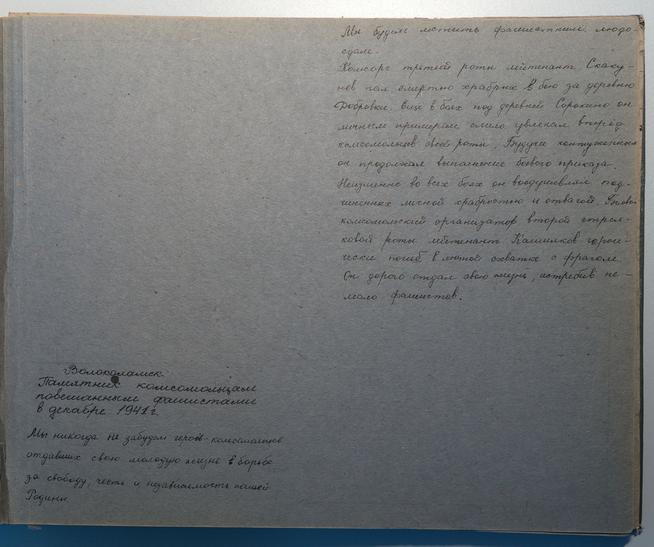 Волоколамск
Памятник комсомольцам
повешанным фашистами
в декабре 1941 г.
Мы никогда не забудем героев-комсомольцев
отдавших свою молодую жизнь в борьбе
за свободу, честь и независимость нашей
Родины
Мы будем мстить фашистким людо-
едам.
Комсорг третьей роты лейтенант Скаку-
нов пал смертью храбрых в бою за деревню
Добровки. Еще в боях под деревней Сорокино он
личным примером смело увлекал вперёд
комсомольцев своей роты, Будучи контуженным
он продолжал выполнение боевого приказа.
Неизменно во всех боях он воодушевлял под-
чиненных личной храбростью и отвагой.
комсомольский организатор второй стрел-
ковой роты лейтенант Калинков герои-
чески погиб в лютой схватке с врагом.
Он дорого отдал свою жизнь, истребив не-
мало фашистов.